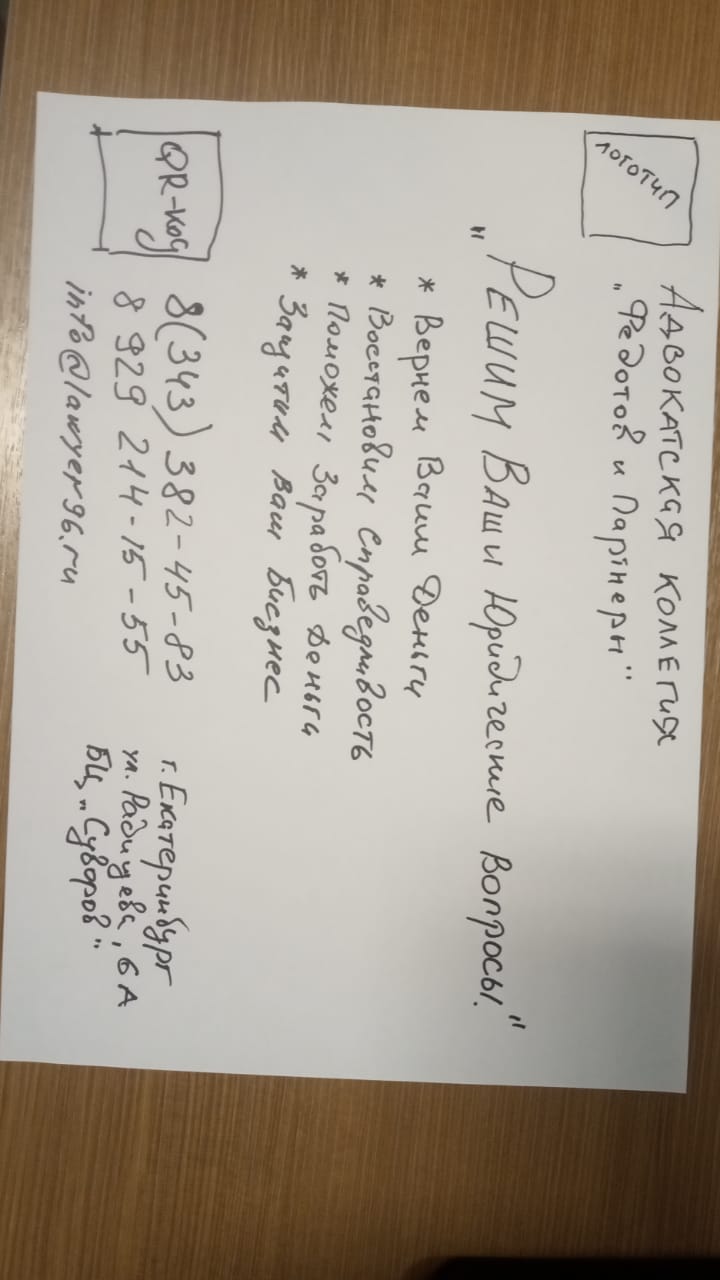 ЛОГОТИП
Адвокатская коллегия
„Федотов и Партнеры"
„Решим Ваши Юридические вопросы."
* Вернем Ваши Деньги
* Восстановим справедливость
* Поможем Заработь Деньги
* Защитим ваш Бизнес
QR-код
8(343) 382-45-83
8 929 214-15-55
info@lawyer96.ru
г. Екатеринбург
ул. Радищева, 6 А
БЦ „Суворов"